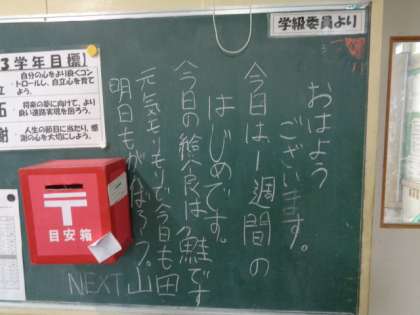 学級委員より
おはよう
ございます。
今日は1週間の
はじめです。
今日の給食は鮭です
元気もりもりで今日も
明日もがんばろう。
NEXT 山田
3学年目標】
自分の心をより良くコン
トロールし、自立心を育て
よう。
将来の夢に向けて、より
良い進路実現を図ろう。
謝
人生の節目に当たり、感
謝の心を大切にしよう。
〒
目安箱